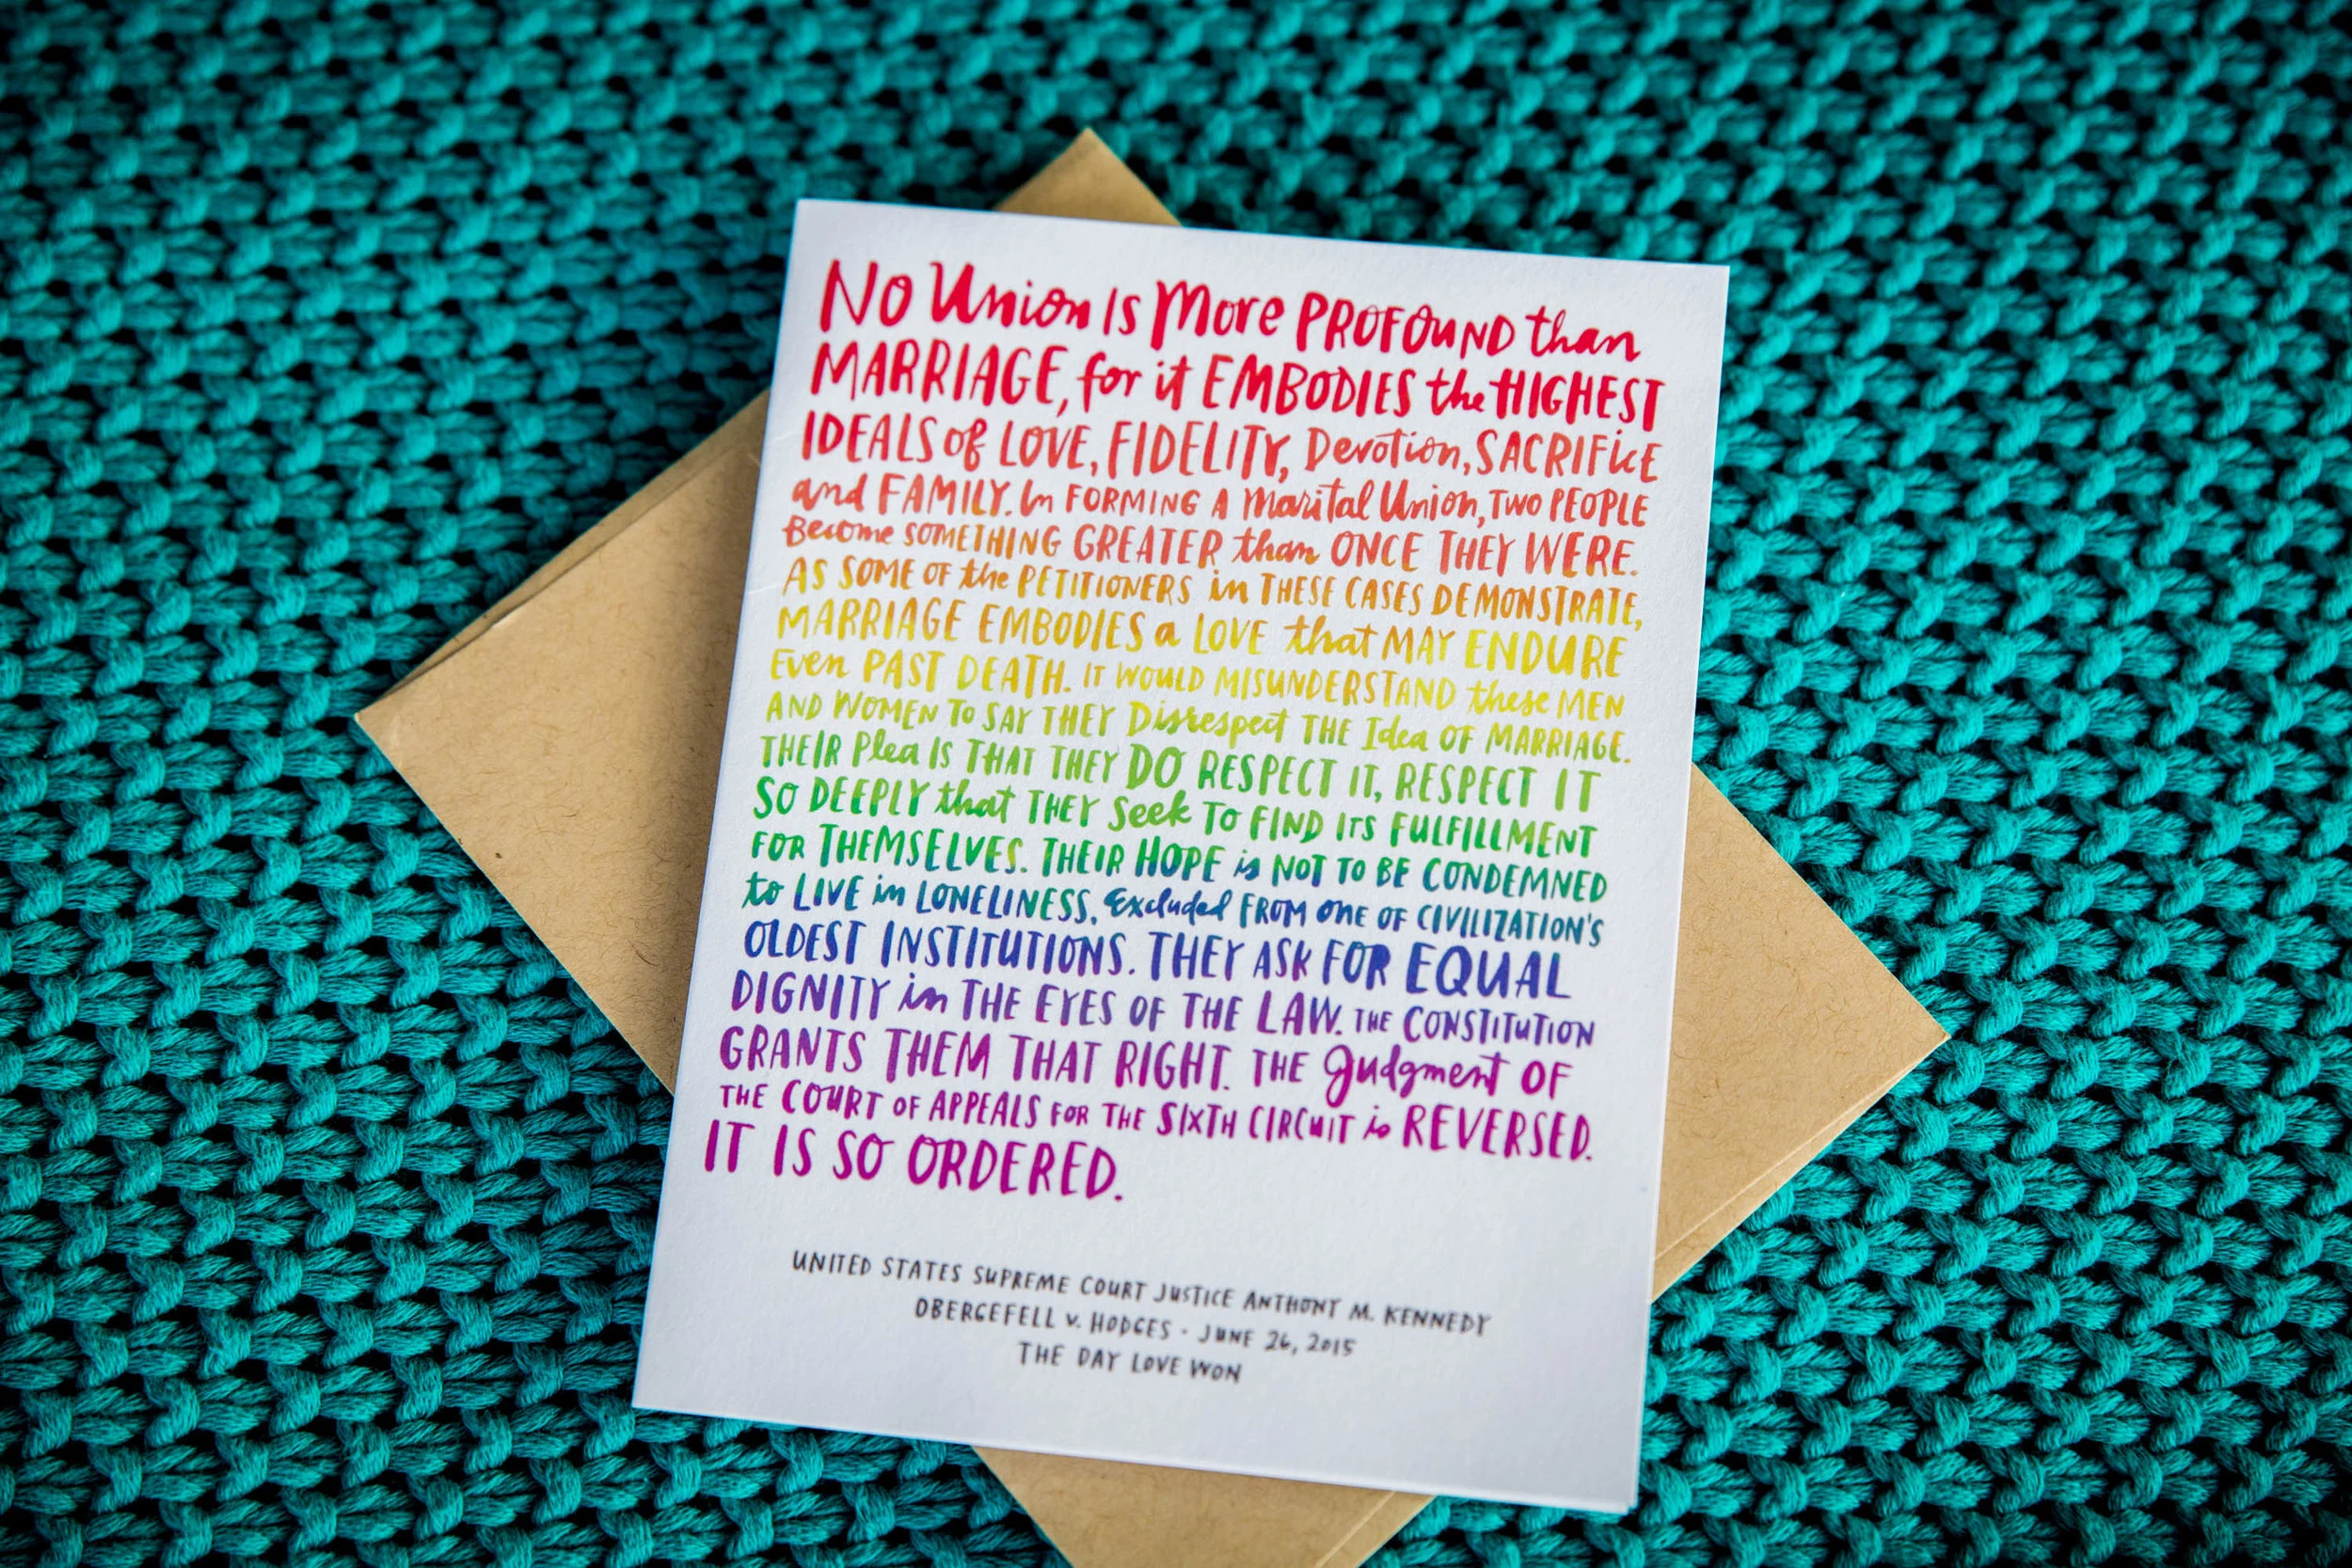 No Union Is More PROFOUND than
MARRIAGE, for it EMBODIES the HIGHEST
IDEALS of LOVE, FIDELITY, Devotion, SACRIFICE
and FAMILY. In FORMING A Marital Union, TWO PEOPLE
Become SOMETHING GREATER than ONCE THEY WERE.
AS SOME OF the PETITIONERS in THESE CASES DEMONSTRATE,
MARRIAGE EMBODIES a LOVE that MAY ENDURE
Even PAST DEATH. IT WOULD MISUNDERSTAND these MEN
AND WOMEN TO SAY THEY Disrespect THE Idea OF MARRIAGE.
THEIR Plea IS THAT THEY DO RESPECT IT, RESPECT IT
SO DEEPLY that THEY Seek TO FIND ITS FULFILLMENT
FOR THEMSELVES. THEIR HOPE is NOT TO BE CONDEMNED
to LIVE in LONELINESS, Excluded FROM ONE OF CIVILIZATION'S
OLDEST INSTITUTIONS. THEY ASK FOR EQUAL
DIGNITY in THE EYES OF THE LAW. THE CONSTITUTION
GRANTS THEM THAT RIGHT. THE Judgment OF
THE COURT OF APPEALS FOR THE SIXTH CIRCUIT is REVERSED.
IT IS SO ORDERED.
UNITED STATES SUPREME COURT JUSTICE ANTHONY M. KENNEDY
OBERGEFELL v. HODGES · JUNE 26, 2015
THE DAY LOVE WON